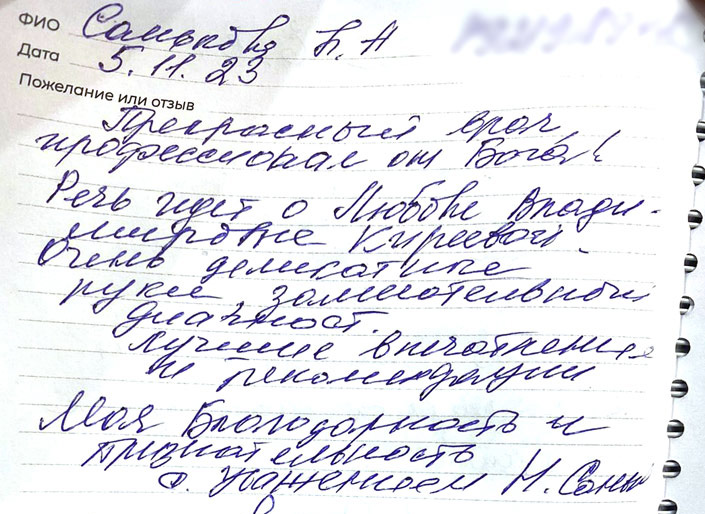 ФИО
Дата 5.11.23
Пожелание или отзыв
Прекрасный врач,
профессионал от Бога!
Речь идет о Любове Влади-
мировне Киреевой
Очень деликатные
руки замечательный
диагност.
Лучшие впечатления
и рекомендации
Моя Благодарность и
признательность
с уважением Н.